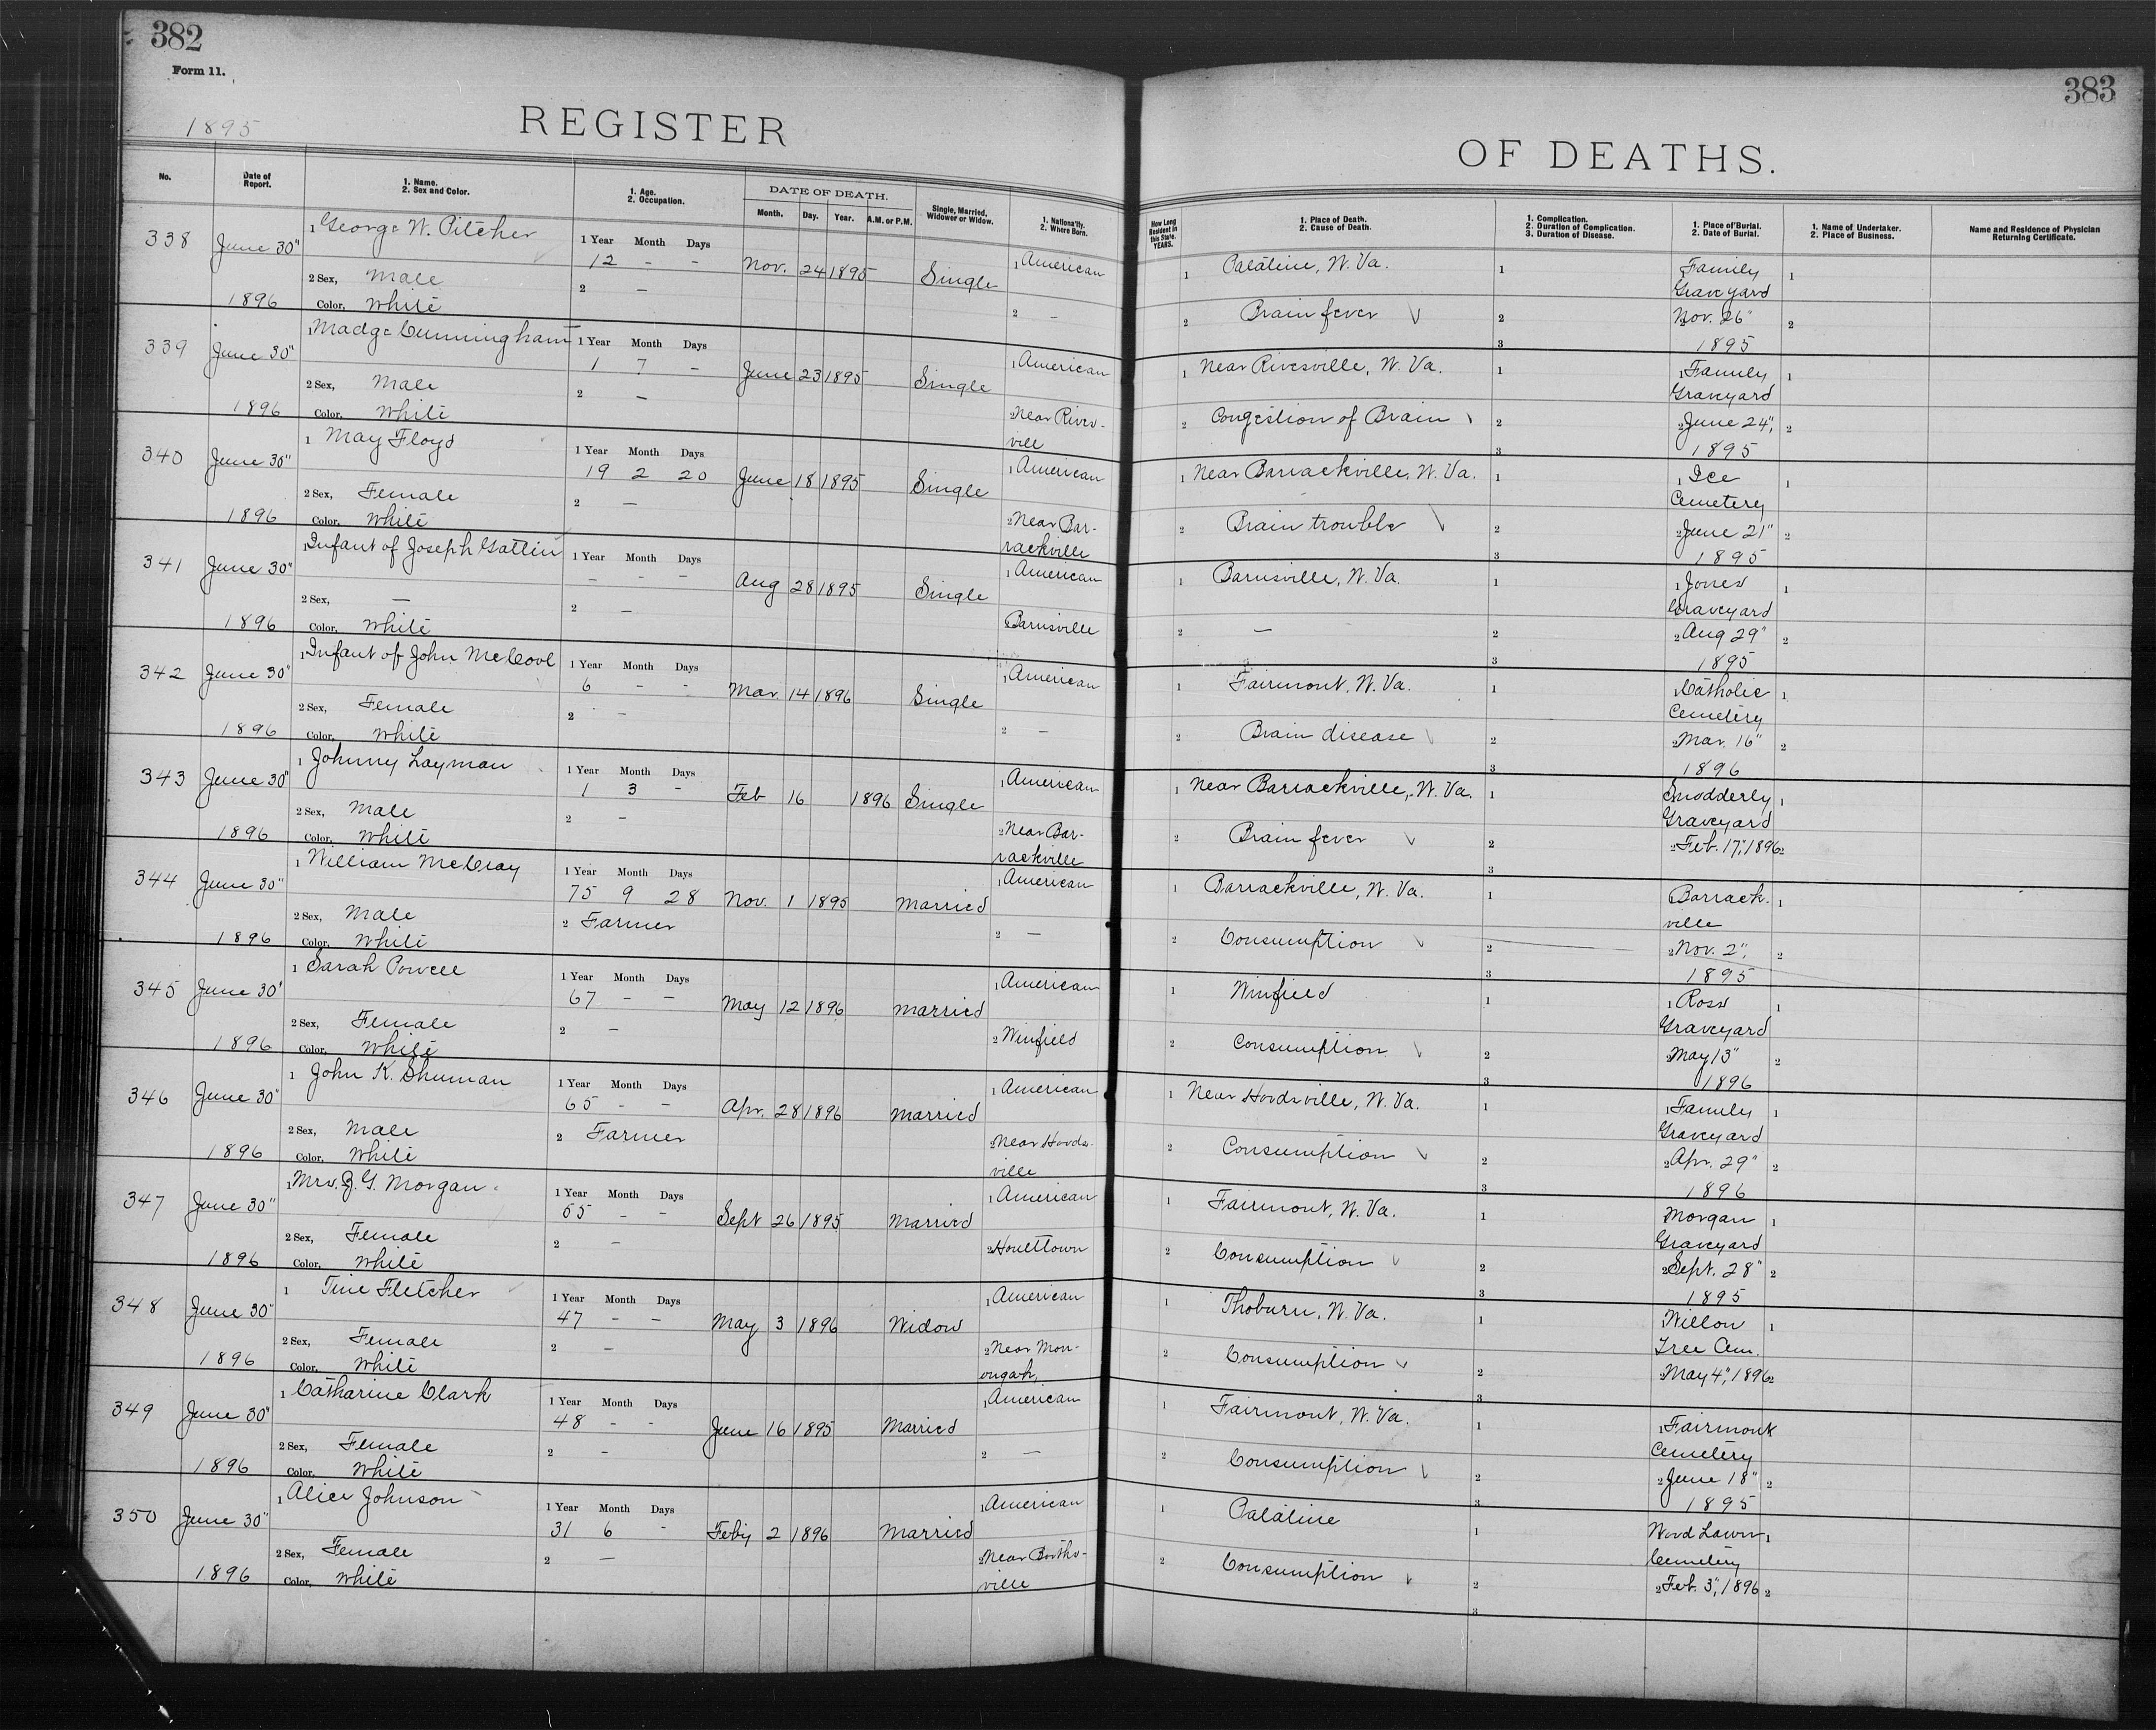 382
Form 11.
1895
REGISTER
No.
Date of Report.
1. Name.
2. Sex and Color.
1. Age.
2. Occupation.
DATE OF DEATH.
Month. Day. Year. A.M. or P.M.
Single, Married, Widower or Widow.
1. Nationality.
2. Where Born.
338 June 30" 1 George W. Pitcher 1 Year Month Days
12 - - Nov. 24 1895 Single 1 American
2 Sex, Male 2 —
1896 Color, White 2 —
339 June 30" 1 Madge Cunningham 1 Year Month Days
1 7 - June 23 1895 Single 1 American
2 Sex, Male 2 —
1896 Color, White 2 Near Rives-
ville
340 June 30" 1 May Floyd 1 Year Month Days
19 2 20 June 18 1895 Single 1 American
2 Sex, Female 2 —
1896 Color, White 2 Near Bar-
rackville
341 June 30" 1 Infant of Joseph Gatlin 1 Year Month Days
- - - Aug 28 1895 Single 1 American
2 Sex, — 2 —
1896 Color, White Barnsville
342 June 30" 1 Infant of John McCool 1 Year Month Days
6 - - Mar. 14 1896 Single 1 American
2 Sex, Female 2 —
1896 Color, White 2 —
343 June 30" 1 Johnny Layman 1 Year Month Days
1 3 - Feb 16 1896 Single 1 American
2 Sex, Male 2 —
1896 Color, White 2 Near Bar-
rackville
344 June 30" 1 William McCray 1 Year Month Days
75 9 28 Nov. 1 1895 Married 1 American
2 Sex, Male 2 Farmer
1896 Color, White 2 —
345 June 30" 1 Sarah Powell 1 Year Month Days
67 - - May 12 1896 Married 1 American
2 Sex, Female 2 —
1896 Color, White 2 Winfield
346 June 30" 1 John K. Shuman 1 Year Month Days
65 - - Apr. 28 1896 Married 1 American
2 Sex, Male 2 Farmer
1896 Color, White 2 Near Hoods-
ville
347 June 30" 1 Mrs. Z. G. Morgan 1 Year Month Days
55 - - Sept 26 1895 Married 1 American
2 Sex, Female 2 —
1896 Color, White 2 Houlttown
348 June 30" 1 Tine Fletcher 1 Year Month Days
47 - - May 3 1896 Widow 1 American
2 Sex, Female 2 —
1896 Color, White 2 Near Mon-
ongah,
349 June 30" 1 Catharine Clark 1 Year Month Days
48 - - June 16 1895 Married 1 American
2 Sex, Female 2 —
1896 Color, White 2 —
350 June 30" 1 Alice Johnson 1 Year Month Days
31 6 - Feby 2 1896 Married 1 American
2 Sex, Female 2 —
1896 Color, White 2 Near Bootho-
ville
383
OF DEATHS.
How Long Resident in this State. YEARS.
1. Place of Death.
2. Cause of Death.
1. Complication.
2. Duration of Complication.
3. Duration of Disease.
1. Place of Burial.
2. Date of Burial.
1. Name of Undertaker.
2. Place of Business.
Name and Residence of Physician Returning Certificate.
1 Palatine, W. Va. 1 Family 1
Graveyard
2 Brain fever 2 Nov. 26" 2
3 1895
1 Near Rivesville, W. Va. 1 1 Family 1
Graveyard
2 Congestion of Brain 2 2 June 24", 2
3 1895
1 Near Barrackville, W. Va. 1 1 Ice 1
Cemetery
2 Brain trouble 2 2 June 21" 2
3 1895
1 Barnsville, W. Va. 1 1 Jones 1
Graveyard
2 — 2 2 Aug 29" 2
3 1895
1 Fairmont, W. Va. 1 1 Catholic 1
Cemetery
2 Brain disease 2 2 Mar. 16" 2
3 1896
1 Near Barrackville, W. Va. 1 Snodderly 1
Graveyard
2 Brain fever 2 2 Feb. 17", 1896 2
3
1 Barrackville, W. Va. 1 Barrack- 1
ville
2 Consumption 2 2 Nov. 2", 2
3 1895
1 Winfield 1 1 Ross 1
Graveyard
2 Consumption 2 2 May 13" 2
3 1896
1 Near Hoodsville, W. Va. 1 1 Family 1
Graveyard
2 Consumption 2 2 Apr. 29" 2
3 1896
1 Fairmont, W. Va. 1 Morgan 1
Graveyard
2 Consumption 2 2 Sept. 28" 2
3 1895
1 Thoburn, W. Va. 1 1 Willow 1
Tree Cem.
2 Consumption 2 2 May 4", 1896 2
3
1 Fairmont, W. Va. 1 1 Fairmont
Cemetery
2 Consumption 2 2 June 18" 2
3 1895
1 Palatine 1 Wood Lawn 1
Cemetery
2 Consumption 2 2 Feb. 3", 1896 2
3